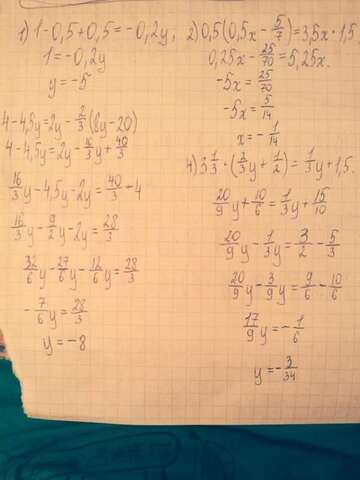 1) 1-0,5+0,5=-0,2y;
1=-0,2y
y=-5
2) 0,5(0,5x-5/7)=3,5x·1,5
0,25x-25/70=5,25x.
-5x=25/70
-5x=5/14
x=-1/14
4-4,5y=2y-2/3(8y-20)
4-4,5y=2y-16/3y+40/3
16/3y-4,5y-2y=40/3-4
16/3y-9/2y-2y=28/3
32/6y-27/6y-12/6y=28/3
-7/6y=28/3
y=-8
4) 3 1/3·(2/3y+1/2)=1/3y+1,5.
20/9y+10/6=1/3y+15/10
20/9y-1/3y=3/2-5/3
20/9y-3/9y=9/6-10/6
17/9y=-1/6
y=-3/34